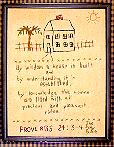 By wisdom a house is built
and
by understanding it is
established
by knowledge the rooms
are filled with all
precious and pleasant
riches
PROVERBS 24:3-4